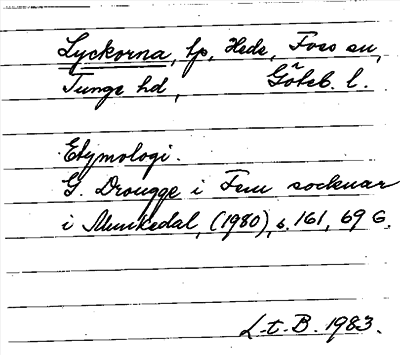 Lyckorna, lp, Hede, Foss sn,
Tunge hd, Göteb. l.
Etymologi.
G. Drougge i Fem socknar
i Munkedal, (1980), s. 161, 69 G.
L-t-B. 1983.